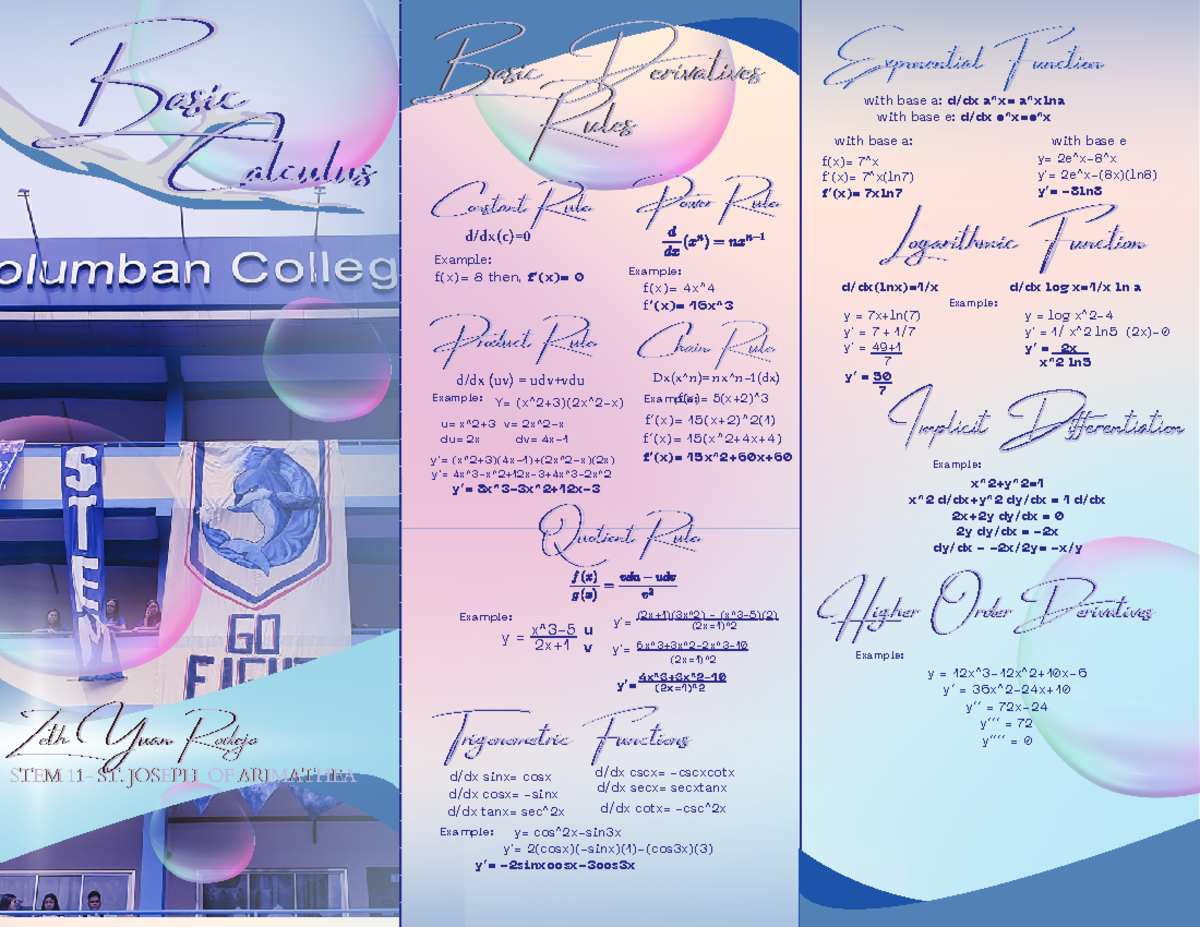 Basic
Calculus
olumban Colleg
STEM
GO
FIGHT
Zeth Yuan Rodejo
STEM 11- ST. JOSEPH OF ARIMATHEA
Basic Derivatives
Rules
Constant Rule
d/dx(c)=0
Example:
f(x)= 8 then, f'(x)= 0
Power Rule
d/dx (x^n) = nx^n-1
Example:
f(x)= 4x^4
f'(x)= 16x^3
Product Rule
d/dx (uv) = udv+vdu
Example: Y= (x^2+3)(2x^2-x)
u= x^2+3 v= 2x^2-x
du= 2x dv= 4x-1
y'= (x^2+3)(4x-1)+(2x^2-x)(2x)
y'= 4x^3-x^2+12x-3+4x^3-2x^2
y'= 8x^3-3x^2+12x-3
Chain Rule
Dx(x^n)=nx^n-1(dx)
Example: f(x)= 5(x+2)^3
f'(x)= 15(x+2)^2(1)
f'(x)= 15(x^2+4x+4)
f'(x)= 15x^2+60x+60
Quotient Rule
f(x)/g(x) = vdu - udv/v²
Example:
y = x^3-5 u
2x+1 v
y'= (2x+1)(3x^2) - (x^3-5)(2)
(2x=1)^2
y'= 6x^3+3x^2-2x^3-10
(2x=1)^2
y'= 4x^3+3x^2-10
(2x=1)^2
Trigonometric Functions
d/dx sinx= cosx
d/dx cosx= -sinx
d/dx tanx= sec^2x
d/dx cscx= -cscxcotx
d/dx secx= secxtanx
d/dx cotx= -csc^2x
Example: y= cos^2x-sin3x
y'= 2(cosx)(-sinx)(1)-(cos3x)(3)
y'= -2sinxcosx-3cos3x
Exponential Function
with base a: d/dx a^x= a^xlna
with base e: d/dx e^x=e^x
with base a:
f(x)= 7^x
f'(x)= 7^x(ln7)
f'(x)= 7xln7
with base e
y= 2e^x-8^x
y'= 2e^x-(8x)(ln8)
y'= -8ln8
Logarithmic Function
d/dx(lnx)=1/x
d/dx log x=1/x ln a
Example:
y = 7x+ln(7)
y' = 7 + 1/7
y' = 49+1
7
y' = 50
7
y = log x^2-4
y' = 1/ x^2 ln5 (2x)-0
y' = 2x
x^2 ln5
Implicit Differentiation
Example:
x^2+y^2=1
x^2 d/dx+y^2 dy/dx = 1 d/dx
2x+2y dy/dx = 0
2y dy/dx = -2x
dy/dx - -2x/2y= -x/y
Higher Order Derivatives
Example:
y = 12x^3-12x^2+10x-6
y' = 36x^2-24x+10
y'' = 72x-24
y''' = 72
y'''' = 0